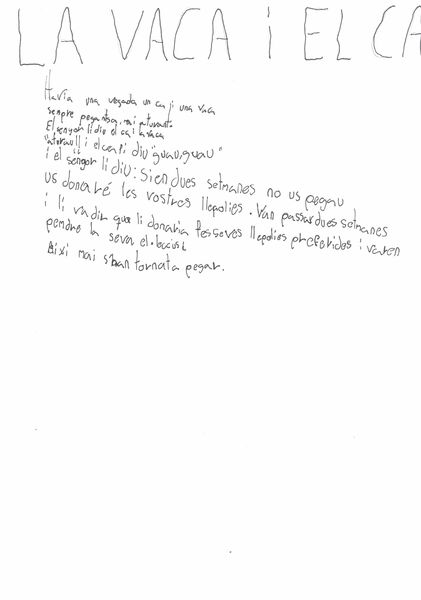 LA VACA i EL CA
Havia una vegada un ca i una vaca
sempre
El senyor li diu el ca i la vaca
i el ca li diu "guau, guau"
i el senyor li diu: Si en dues setmanes no us pegau
us donaré les vostres llepolies. Van passar dues setmanes
i li va dir que li donaria les seves llepolies preferides i varen
pendre la seva
Aixi mai s'han tornat a pegar.